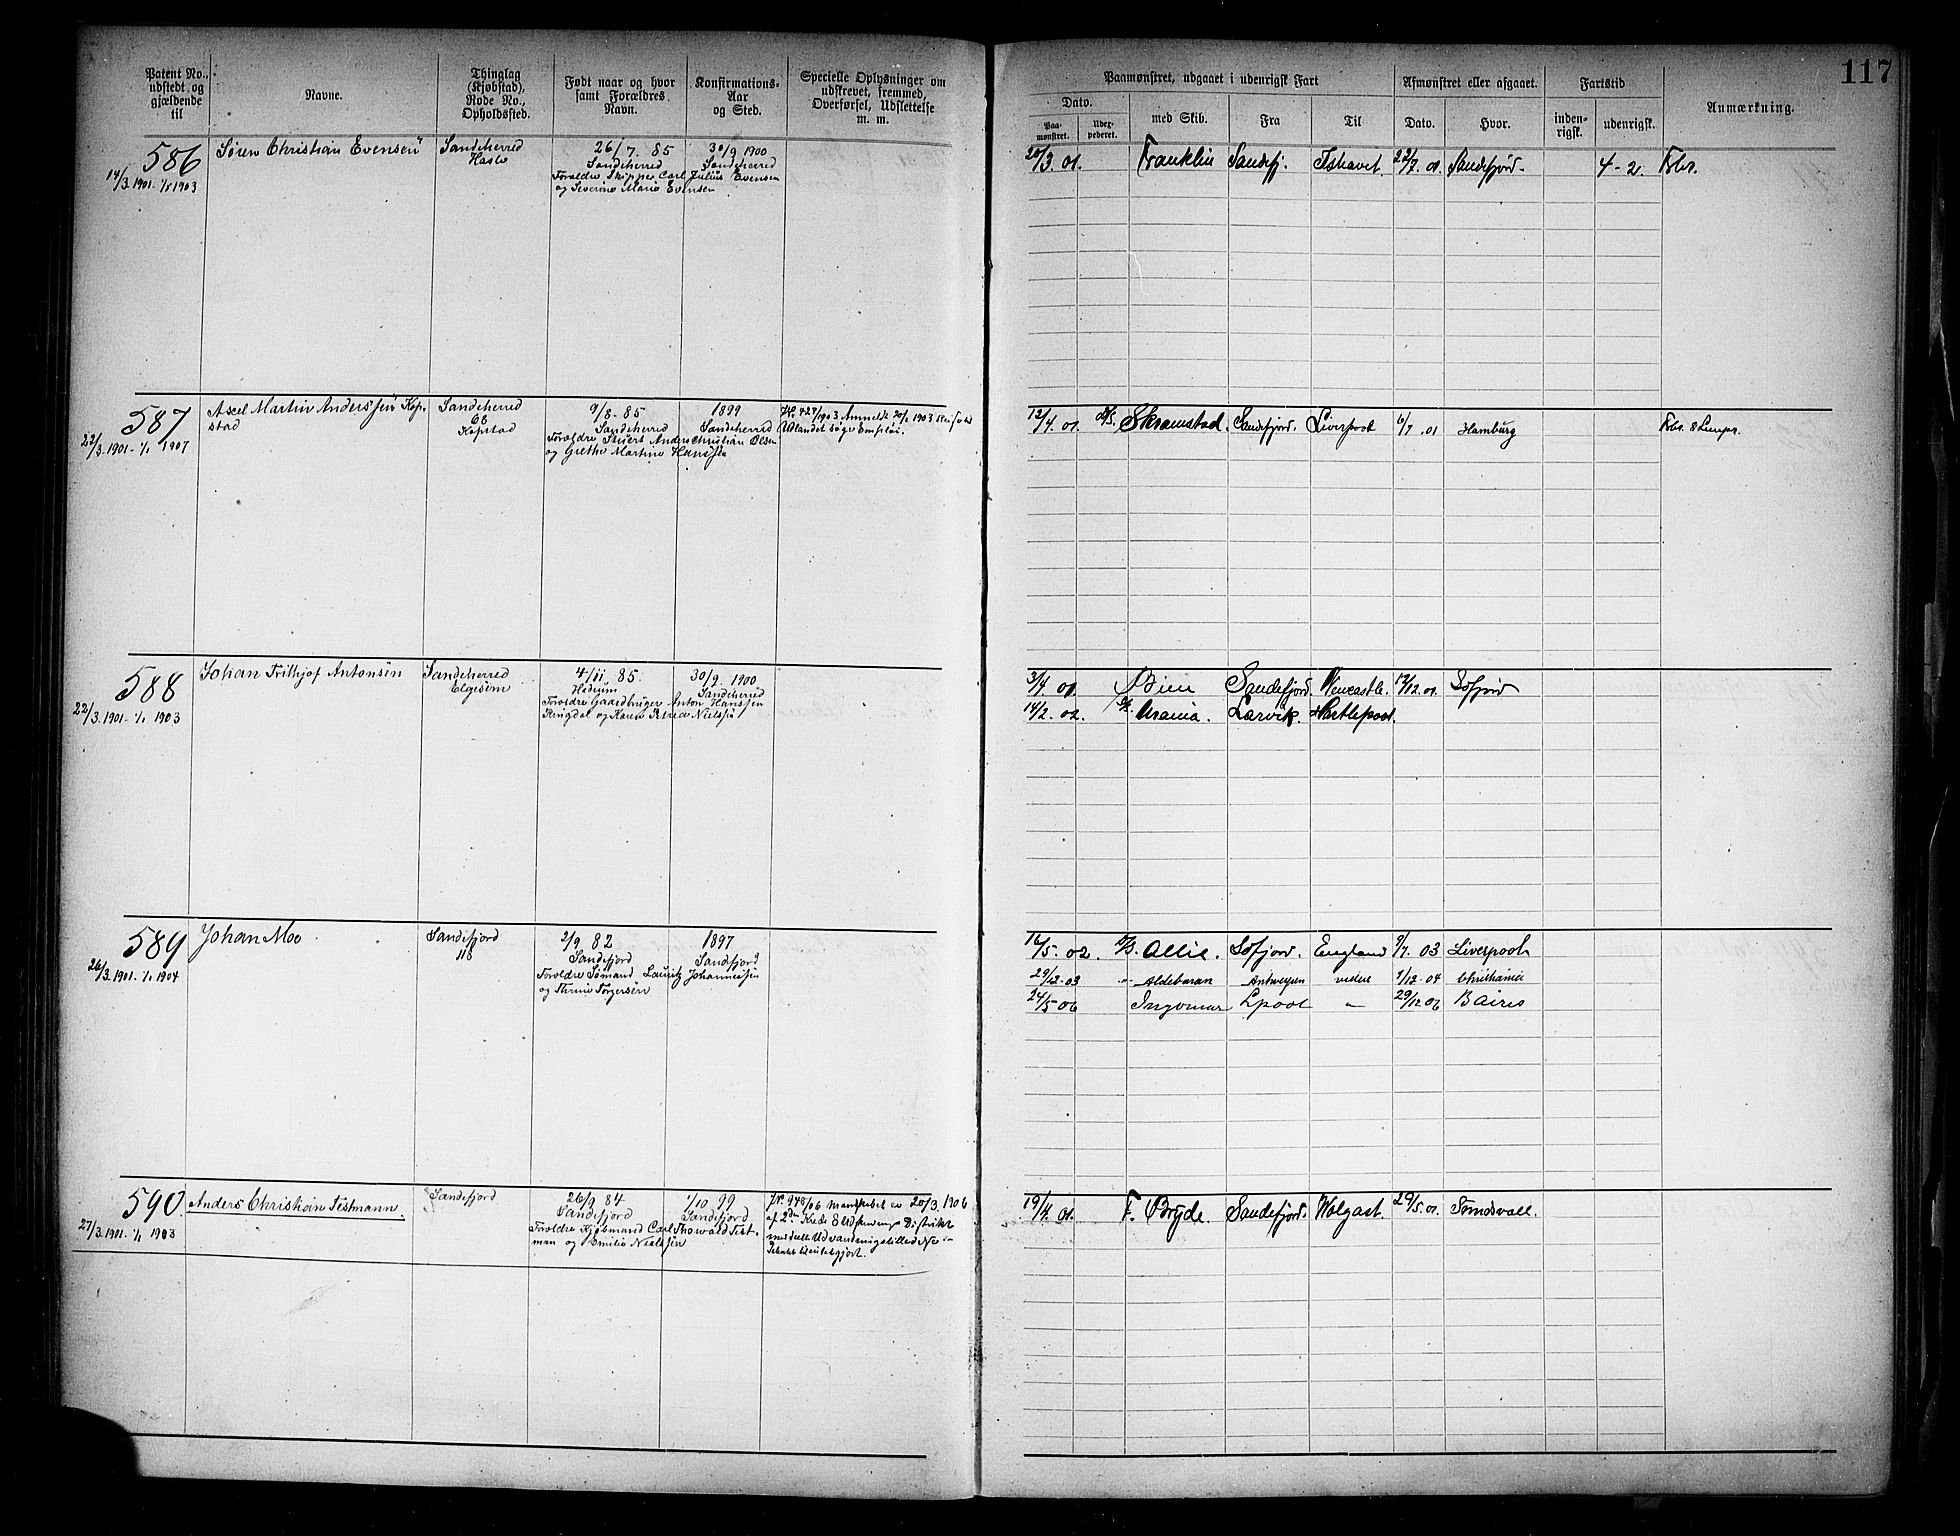 117
Patent No., udstedt og gjældende til
Navne.
Thinglag (Kjøbstad), Rode No., Opholdssted.
Født naar og hvor samt Forældres Navn.
Konfirmations-Aar og Sted.
Specielle Oplysninger om udskrevet, fremmed, Overførsel, Udslettelse m. m.
Paamønstret, udgaaet i udenrigsk Fart
Afmønstret eller afgaaet.
Fartstid
Anmærkning.
Dato.
med Skib.
Fra
Til
Dato.
Hvor.
inden-rigsk.
udenrigsk.
Paa-mønstret.
Udex-pederet.
586
14/3.1901.-1/1 1903
Søren Christian Evensen
Sandeherred
Hasle
26/7. 85
Sandeherred
Forældre Skipper Carl Julius Evensen
og Severine Marie Evensen
30/9 1900
Sandeherred
20/3. 01. Franklin Sandefj. Ishavet. 22/7. 01. Sandefjord. 4-2.
587
22/3.1901.-1/1 1907
Axel Martin Anderssen Kop-
stad
Sandeherred
68
Kopstad
9/8-85
Sandeherred
Forældre Stuert Andr. Christian Olsen
og Grethe Martine Hanssen
1899
Sandeherred
12/4. 01. Skramstad. Sandefjord. Liverpool 6/7. 01 Hamburg
588
22/3.1901.-1/1 1903
Johan Frithjof Antonsen
Sandeherred
Elgesem
4/11 85.
Hedrum
Forældre Gaardbruger Anton Hanssen
Ringdal og Karen Nielsen
30/9. 1900
Sandeherred
3/4 01. Bien Sandefjord. Newcastle. 12/12.01. Sdfjord
14/2. 02. Urania. Larvik. Hartlepool.
589
26/3.1901.-1/1 1904
Johan Moe
Sandefjord
118
2/9 82
Sandefjord
Forældre Sømand Lauritz Johannesen
og Thrine Torgersen
1897
Sandefjord
14/5. 02. Allie. Sdfjord. England 9/7. 03 Liverpool
29/12-03 " Aldebaran Antwerpen videre 1/12-04 Christiania
24/5-06 Ingomar Lpool " 29/12 06 Baires
590
27/3.1901.-1/1 1903
Anders Christian Testmann.
Sandefjord
26/9 84
Sandefjord
Forældre Kjøbmand Carl Thorvald Test-
man og Emilie Nielsen
1/10 99
Sandefjord
Jr. 948/06 Mandskabet er 20/3. 1906
19/4. 01. F. Bryde. Sandefjord. Wolgast. 29/5.01. Sundsvall.